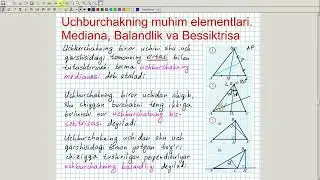 Uchburchakning muhim elementlari.
Mediana, Balandlik va Bessiktrisa
Uchburchakning biror uchini shu uch
qarshisidagi tomonning ortasi bilan
tutashtiruvchi kesma uchburchakning
medianasi deb ataladi
Uchburchakning biror uchidan chiqib,
shu chiqqan burchakni teng ikkiga
bo'luvchi nur uchburchakning bis-
sektrisasi deyiladi
Uchburchakning uchidan shu uch
qarshisidagi tomon yotgan to'g'ri
chiziqqa tushirilgan perpendikulyar
uchburchakning balandligi deyiladi
1
2
3